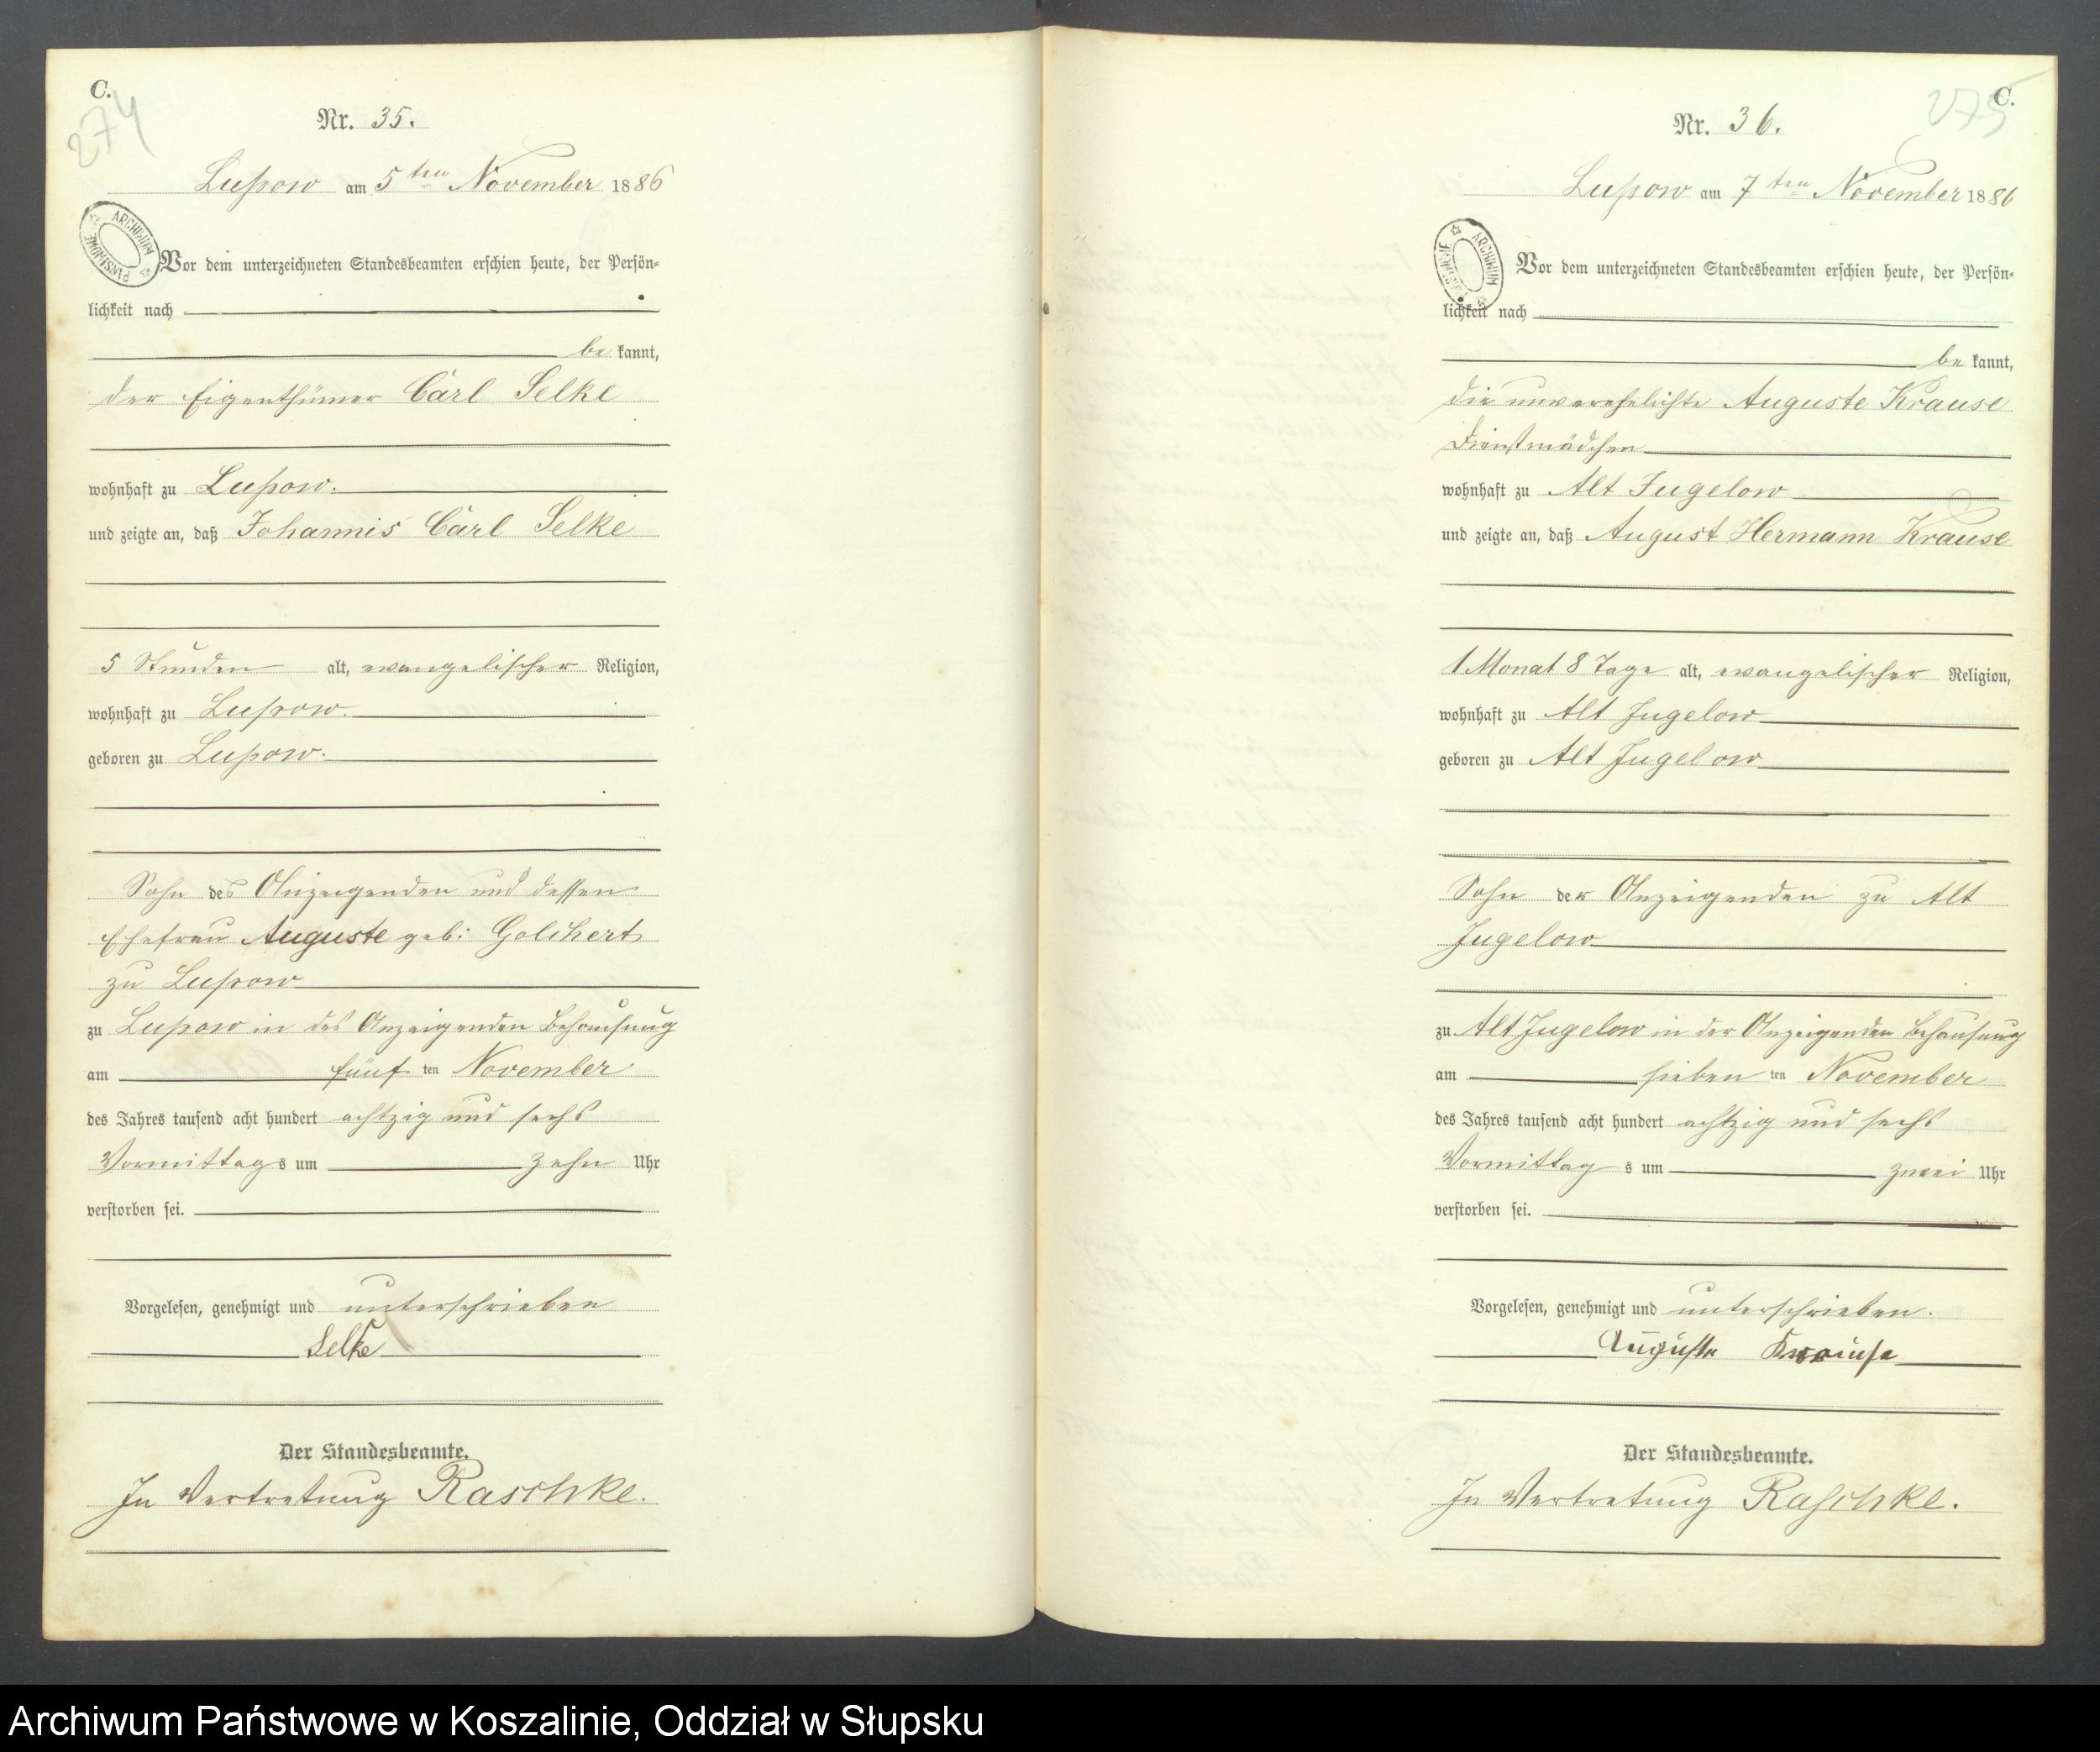 C.
274
Nr. 35.
Lupow am 5ten November 1886
ARCHIWUM PAŃSTWOWE
Vor dem unterzeichneten Standesbeamten erschien heute, der Persön-
lichkeit nach
be kannt,
der Eigenthümer Carl Selke
wohnhaft zu Lupow.
und zeigte an, daß Johannis Carl Selke
5 Stunden alt, evangelischer Religion,
wohnhaft zu Lupow.
geboren zu Lupow.
Sohn des Anzeigenden und dessen
Ehefrau Auguste geb: Golchert
zu Lupow
zu Lupow in des Anzeigenden Behausung
am fünf ten November
des Jahres tausend acht hundert achtzig und sechs
Vormittags um zehn Uhr
verstorben sei.
Vorgelesen, genehmigt und unterschrieben
Selke
Der Standesbeamte.
In Vertretung Raschke.
C.
275
Nr. 36.
Lupow am 7ten November 1886
ARCHIWUM PAŃSTWOWE
Vor dem unterzeichneten Standesbeamten erschien heute, der Persön-
lichkeit nach
be kannt,
die unverehelichte Auguste Krause
Dienstmädchen
wohnhaft zu Alt Jugelow
und zeigte an, daß August Hermann Krause
1 Monat 8 Tage alt, evangelischer Religion,
wohnhaft zu Alt Jugelow
geboren zu Alt Jugelow
Sohn der Anzeigenden zu Alt
Jugelow
zu Alt Jugelow in der Anzeigenden Behausung
am sieben ten November
des Jahres tausend acht hundert achtzig und sechs
Vormittag s um zwei Uhr
verstorben sei.
Vorgelesen, genehmigt und unterschrieben.
Auguste Krause
Der Standesbeamte.
In Vertretung Raschke.
Archiwum Państwowe w Koszalinie, Oddział w Słupsku